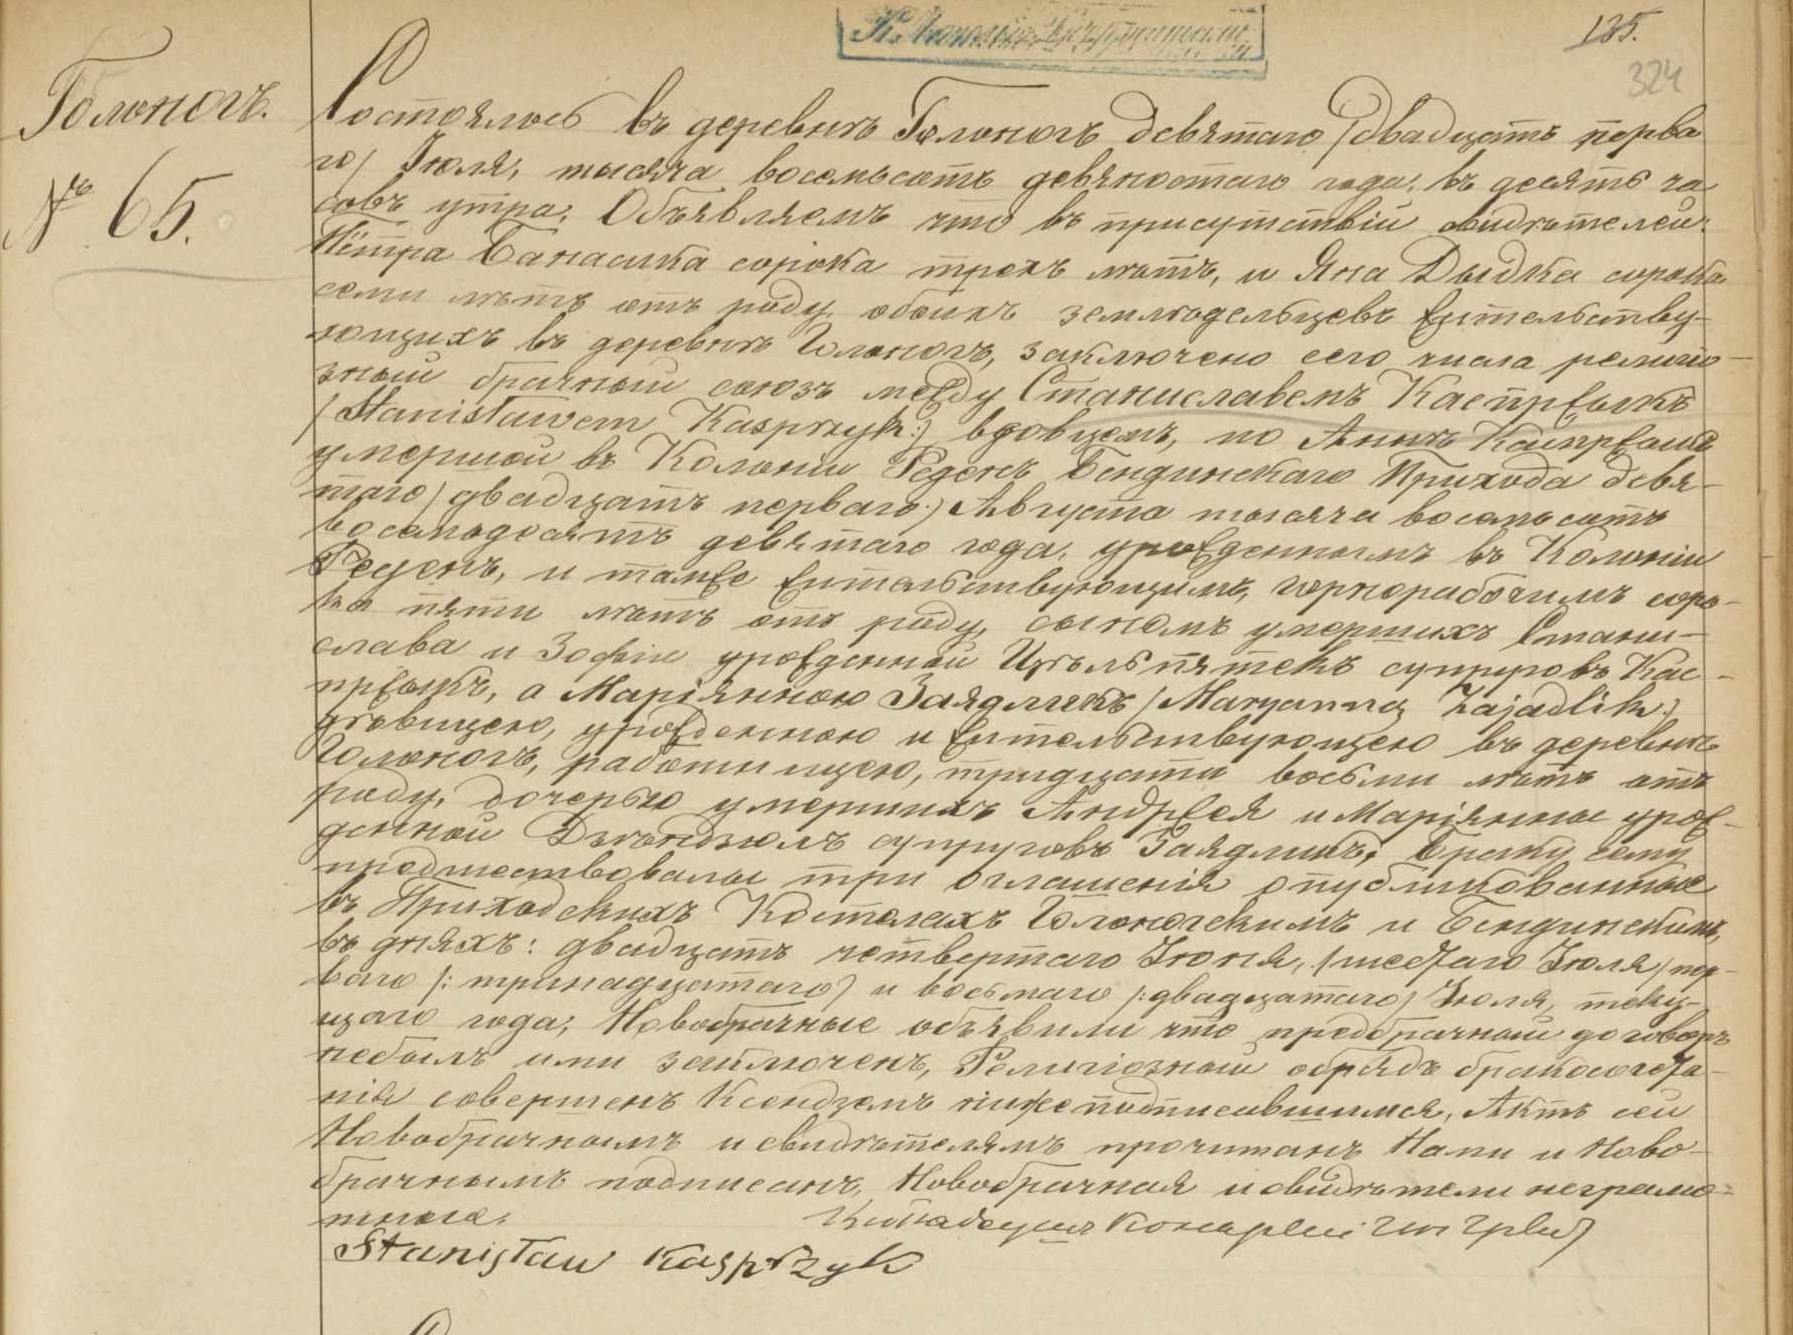 135.
324
Голоногъ.
№ 65.
Состоялось въ деревнѣ Голоногъ девятаго /двадцать перва
го/ Іюля, тысяча восемьсотъ девяностаго года, въ десять ча
совъ утра. Объявляемъ что въ присутствіи свидѣтелей:
Петра Банасика сорока трехъ лѣтъ, и Яна Дыдка сорока
семи лѣтъ отъ роду, обоихъ земледельцевъ жительству-
ющихъ въ деревнѣ Голоногъ, заключено сего числа религіо-
зный брачный союзъ между Станиславемъ Каспржыкъ
/Stanisławem Kasprzyk:/ вдовцемъ, по Аннѣ Каспржыкъ
умершой въ Колоніи Реденъ Бендинскаго Прихода девя-
таго/двадцать перваго:/ Августа тысяча восемьсотъ
восемьдесятъ девятаго года, урожденнымъ въ Колоніи
Реденъ, и тамже жительствующимъ, горнорабочимъ соро-
ка пяти лѣтъ отъ роду, сыномъ умершихъ Стани-
слава и Зофіи урожденной супруговъ Кас-
пржыкъ, а Маріянною Заядликъ /Maryanną Zajadlik:/
дѣвицею, урожденною и жительствующею въ деревнѣ
Голоногъ, работницею, тридцати восьми лѣтъ отъ
роду, дочерью умершихъ Андржея и Маріянны урож-
денной супруговъ Заядликъ; Браку сему
предшествовалы три оглашенія опубликованные
въ Приходскихъ Костелахъ Голоногскимъ и Бендинскимъ,
въ дняхъ: двадцать четвертаго Іюня, /шестаго Іюля/ пер-
ваго /: тринадцатаго/ и восьмаго /:двадцатаго/ Іюля, теку-
щаго года; Новобрачные объявили что предбрачный договоръ
небылъ ими заключенъ, Религіозный обрядъ бракосочета-
нія совершенъ Ксендзомъ нижеподписавшимся, Актъ сей
Новобрачнымъ и свидѣтелямъ прочитанъ Нами и Ново-
брачнымъ подписанъ, Новобрачная и свидѣтели неграмо-
тные.
Stanisław Kasprzyk